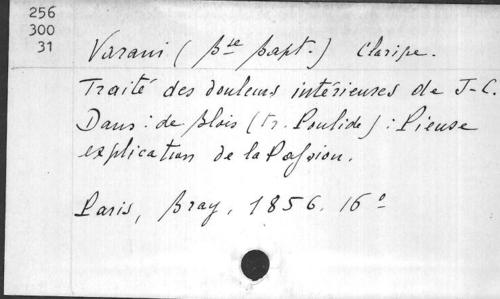 256
300
31
Varani (Bse Bapt.) Clarisse.
Traité des douleurs intérieures de J-C.
Dans : de Blois (tr. Poulide) : Pieuse
explication de la Passion.
Paris, Bray, 1856. 16°